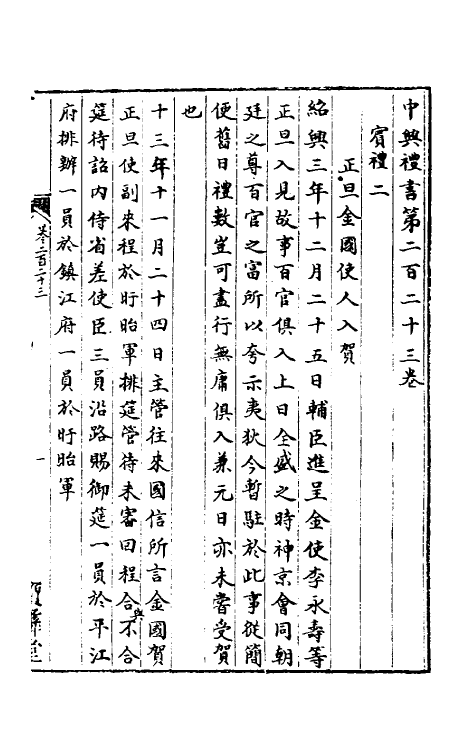 中興禮書第二百二十三卷
賓禮二
正旦金國使人入賀
紹興三年十二月二十五日輔臣進呈金使李永壽等
正旦入見故事百官俱入上曰全盛之時神京會同朝
廷之尊百官之富所以夸示夷狄今暫駐於此事從簡
便舊日禮數豈可盡行無庸俱入兼元日亦未嘗受賀
也
十三年十一月二十四日主管往來國信所言金國賀
正旦使副來程於盱眙軍排筵管待未審回程合與不合
筵待詔內侍省差使臣三員沿路賜御筵一員於平江
府排辦一員於鎮江府一員於盱眙軍
卷二百二十三
一